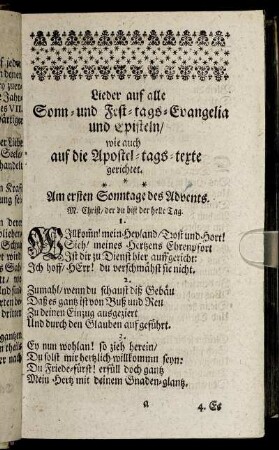 Lieder auf alle
Sonn- und Fest-tags-Evangelia
und Episteln/
wie auch
auf die Apostel-tags-texte
gerichtet.
Am ersten Sonntage des Advents.
M. Christ/ der du bist der helle Tag.
1.
Willkom̃! mein Heyland/ Trost und Hort!
Sieh/ meines Hertzens Ehrenpfort
Ist dir zu Dienst hier auffgericht:
Ich hoff/ HErr! du verschmähst sie nicht.
2.
Zumahl/ wenn du schaust diß Gebäu
Daß es gantz ist von Buß und Reu
Zu deinen Einzug ausgeziert
Und durch den Glauben auf geführt.
3.
Ey nun wohlan! so zieh herein/
Du solst mir hertzlich willkommn seyn:
Du Friede-fürst! erfüll doch gantz
Mein Hertz mit deinem Gnaden-glantz.
a
4. Es